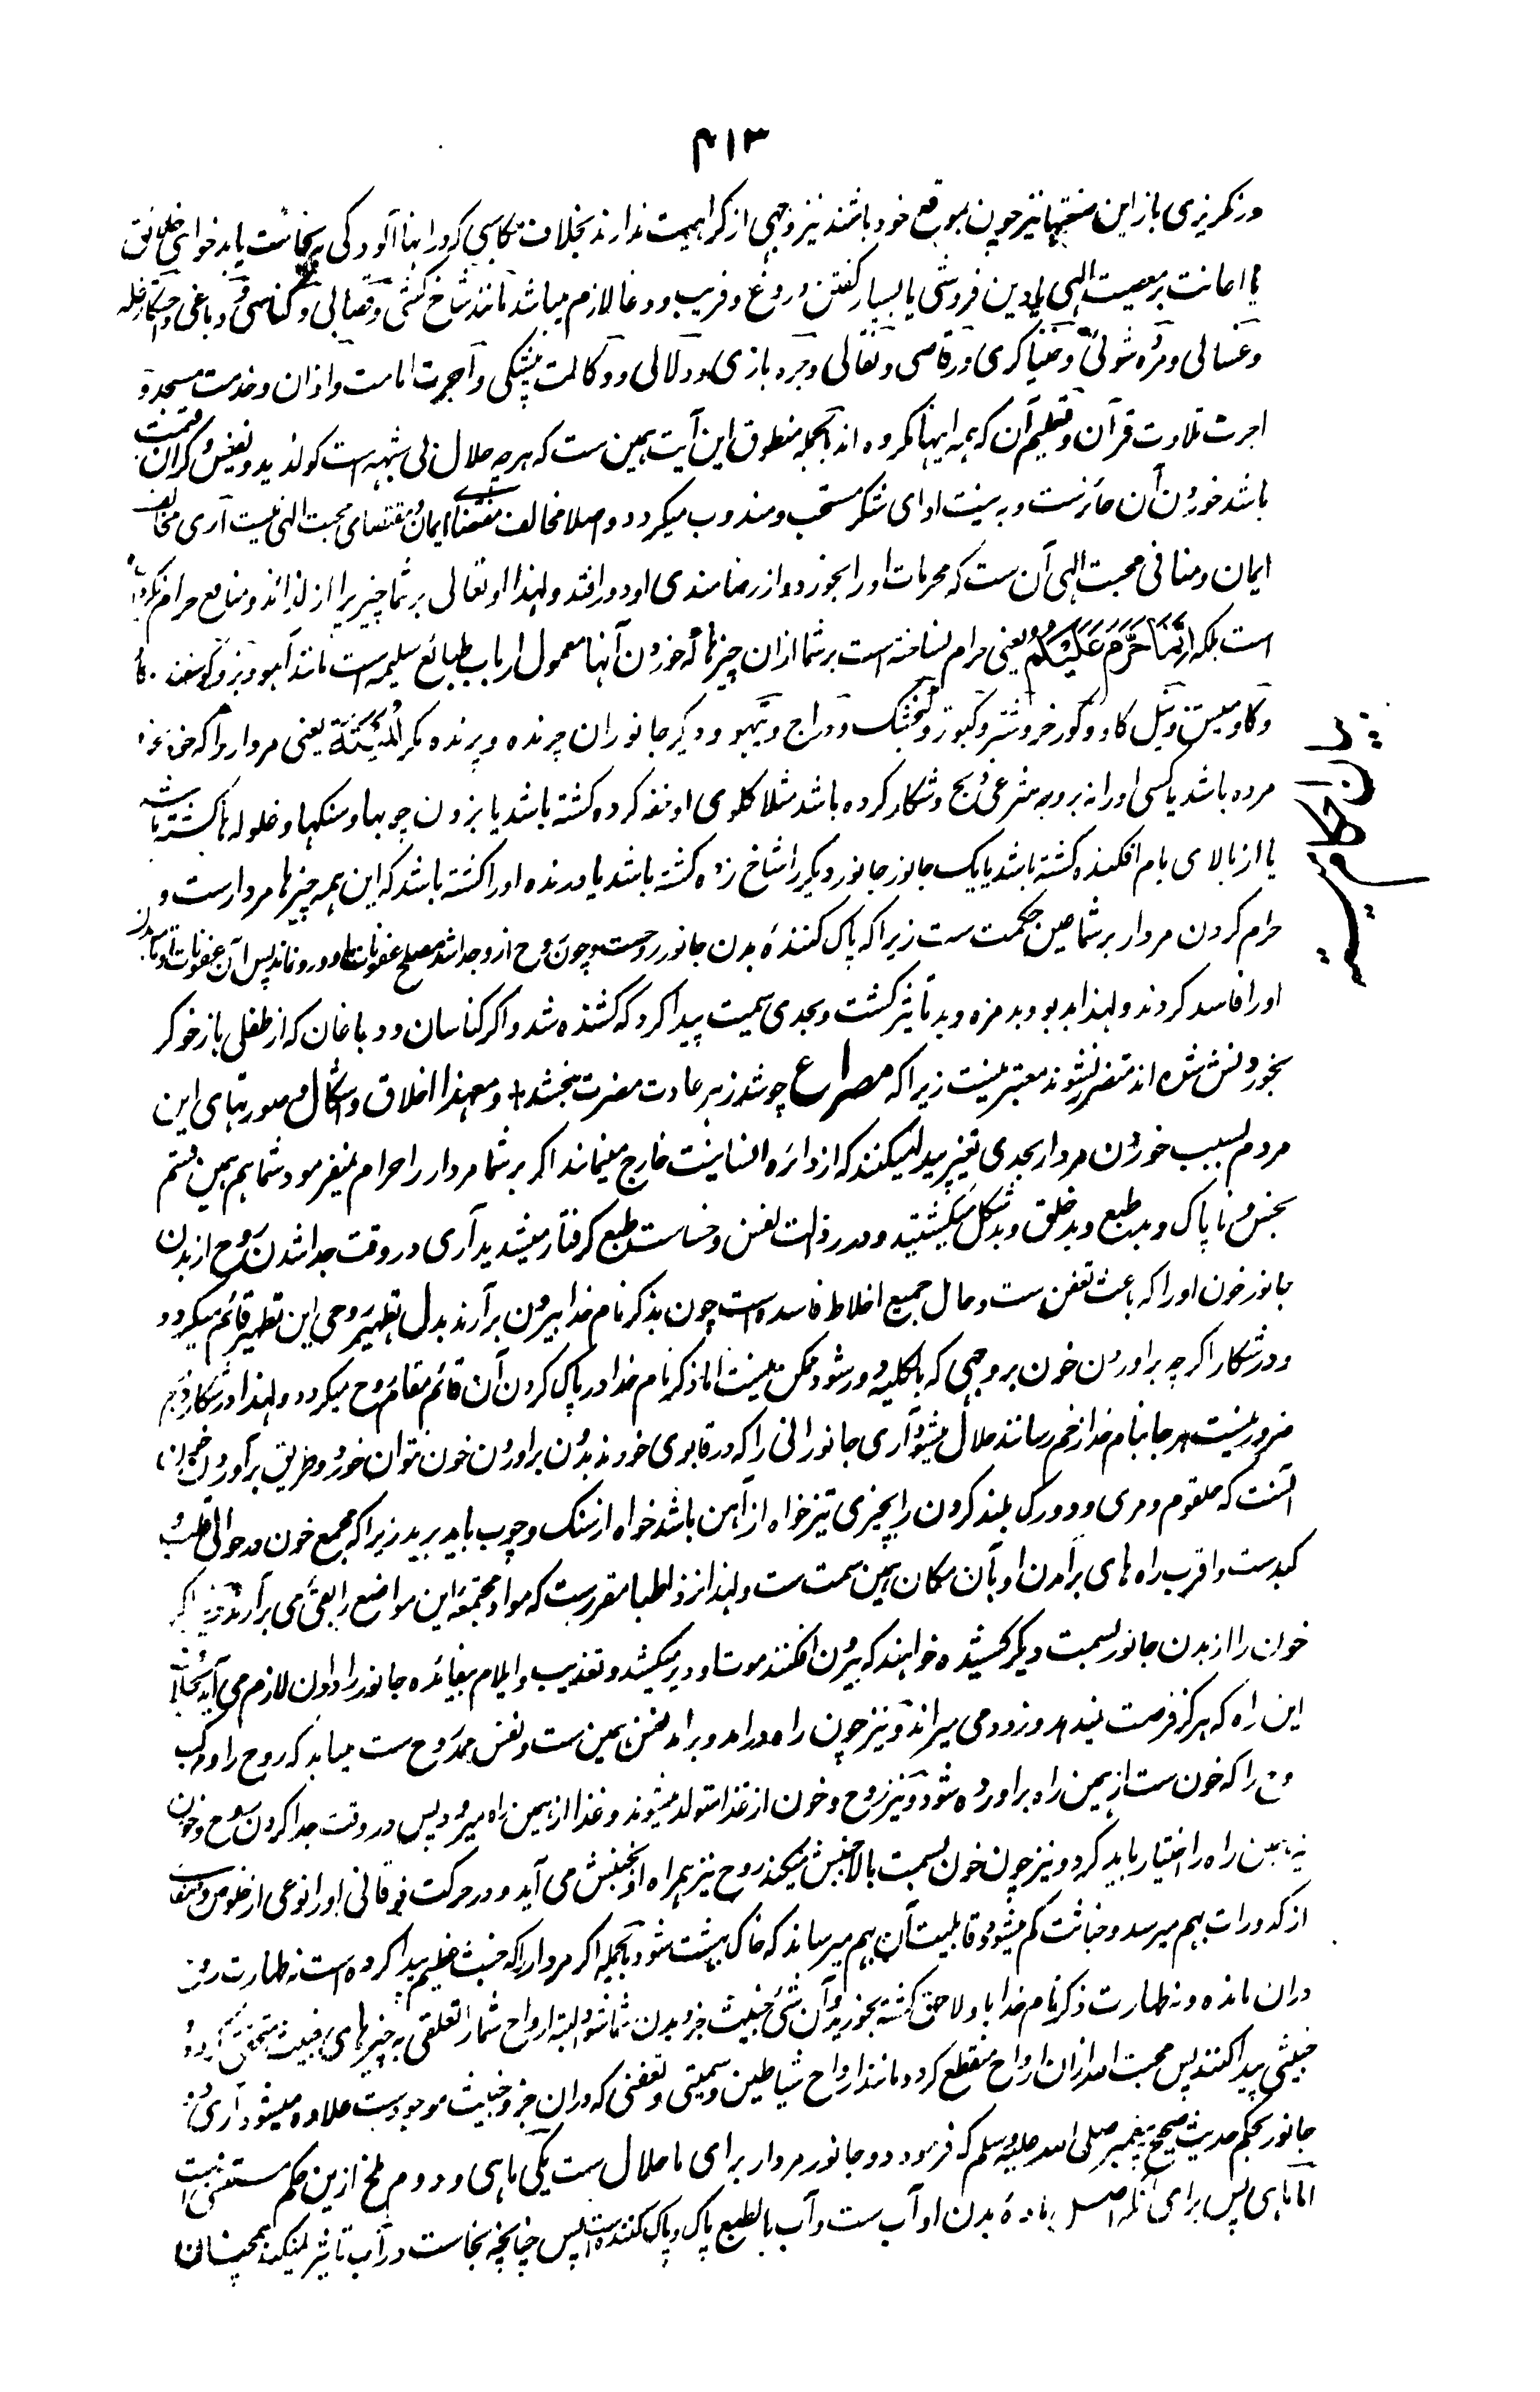 ۴۱۳
ورنگریزی باز این صنعتها نیز چون بموقع خود باشند نیز وجهی از کراهیت ندارند بخلاف مکاسبی که در انها آلودگی به نجاست یا بدخواهی خلائق
یا اعانت بر معصیت الهی یا دین فروشی یا بسیار گفتن دروغ و فریب و دغا لازم میباشد مانند شاخ کشی و قصابی و کناسی و دباغی و احتکار غله
و غسالی و مرده شوئی و خنیاگری و رقاصی و نقالی و جره بازی و دلالی و وکالت پیشگی و اجرت امامت و اذان و خدمت مسجد و
اجرت تلاوت قرآن و تعلیم آن که همه اینها مکروه اند بالجمله منطوق این آیت همین ست که هرچه حلال بی شبهه است گو لذیذ و نفیس و گران قیمت
باشد خوردن آن جائزست و به نیت ادای شکر مستحب و مندوب میگردد و اصلا مخالف مقتضای ایمان و مقتضای محبت الهی نیست آری مخالف
ایمان و منافی محبت الهی آن ست که محرمات او را بخورد و از رضامندی او دور افتد و لهذا او تعالی بر شما چیزی را از لذائذ و منافع حرام نکرده
است بلکه اِنَّمَا حَرَّمَ عَلَيْكُمُ یعنی حرام نساخته است بر شما ازان چیزها که خوردن آنها معمول ارباب طبائع سلیمه است مانند آهو و بز و گوسفند
و گاو میش و نیل گاو و گورخر و شتر و کبوتر و گنجشک و دراج و تیهو و دیگر جانوران چرنده و پرنده مگر الْمَيْتَةَ یعنی مردار را که خود
مرده باشد یا کسی او را نه بر وجه شرعی ذبح و شکار کرده باشد مثلا گلوی او خفه کرده کشته باشد یا بزدن چوبها و سنگها و غلوله ها کشته باشد
یا از بالای بام افگنده کشته باشد یا یک جانور جانور دیگر را شاخ زده کشته باشد یا درنده او را کشته باشد که این همه چیزها مردارست و
حرام کردن مردار بر شما عین حکمت ست زیرا که پاک کنندهٔ بدن جانور روحست و چون روح ازو جدا شد مصلح عفونات او درو نماند پس آن عفونات
او را فاسد کردند و لهذا بدبو و بدمزه و بدتاثیر گشت و بحدی سمیت پیدا کرد که کشنده شد و اگر کناسان و دباغان که از طفلی باز خوگر
بخوردنش شده اند متضرر نشوند معتبر نیست زیرا که مصراع چو شد زهر عادت مضرت نبخشد + و معهذا اخلاق و اشکال و صورتهای این
مردم بسبب خوردن مردار بحدی تغیر پیدا میکنند که از دائره انسانیت خارج مینمایند اگر بر شما مردار را حرام نمیفرمود شما هم همین قسم
نجس و ناپاک و بدطبع و بدخلق و بدشکل میگشتید و در رذالت نفس و خساست طبع گرفتار میشدید آری در وقت جدا شدن روح از بدن
جانور خون او را که باعث تعفن ست و حامل جمیع اخلاط فاسده است چون بذکر نام خدا بیرون برآرند بدل تطهیر روحی این تطهیر قائم میگردد
و در شکار اگرچه برآوردن خون بر وجهی که بالکلیه دور شود ممکن نیست اما ذکر نام خدا در پاک کردن آن قائم مقام روح میگردد و لهذا در شکار ذبح هم
ضرور نیست هر جا بنام خدا زخم رسانند حلال میشود آری جانورانی را که در قابوی خودند بدون برآوردن خون نتوان خورد و طریق برآوردن خون
آنست که حلقوم و مری و دو رگ بلند گردن را بچیزی تیز خواه از آهن باشد خواه از سنگ و چوب باید برید زیرا که مجمع خون در حوالی قلب و
کبدست و اقرب راه های برآمدن او بآن مکان همین سمت ست و لهذا نزد اطبا مقررست که مواد مجتمعه این مواضع را بقی می برآرند و نیز اگر
خون را از بدن جانور بسمت دیگر کشیده خواهند که بیرون افگنند موت او دیر میکشد و تعذیب و ایلام بیفائده جانور را دادن لازم می آید بخلاف
این راه که هرگز فرصت نمیدهد و زود می میراند و نیز چون راه درامد و برامد نفس همین ست و نفس ممد روح ست میباید که روح را و مرکب
روح را که خون ست از همین راه برآورده شود و نیز روح و خون از غذا متولد میشوند و غذا از همین راه میرود پس در وقت جدا کردن روح و خون
نیز همین راه را اختیار باید کرد و نیز چون خون بسمت بالا جنبش میکند روح نیز همراه او بجنبش می آید و در حرکت فوقانی او را نوعی از خلوص و صفا
از کدورات بهم میرسد و خباثت کم میشود و قابلیت آن بهم میرساند که خاک بهشت شود بالجمله اگر مردار را که خبث عظیم پیدا کرده است نه طهارت روح
دران مانده و نه طهارت ذکر نام خدا باو لاحق گشته بخورید و آن شئ خبیث جزو بدن شما شود البته ارواح شما را تعلقی به چیزهای خبیث متحقق گردد و
خبیثی پیدا کنند پس محبت الله ازان ارواح منقطع گردد مانند ارواح شیاطین و سمیتی و تعفنی که دران جزو خبیث موجودست علاوه میشود آری دو
جانور بحکم حدیث صحیح پیغمبر صلی الله علیه وسلم که فرمود دو جانور مردار برای ما حلال ست یکی ماهی و دوم ملخ ازین حکم مستثنی است
اما ماهی پس برای آنکه اصل مادهٔ بدن او آب ست و آب بالطبع پاک و پاک کننده است پس چنانچه نجاست در آب تاثیر نمیکند همچنان
بیان احکام میته